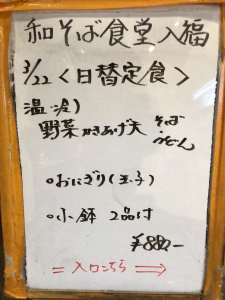 和そば食堂入福
3/22 <日替定食>
温・冷)
野菜かきあげ天 そば
・うどん
○おにぎり(玉子)
○小鉢 2品付
¥880-
= 入口こちら ⇒